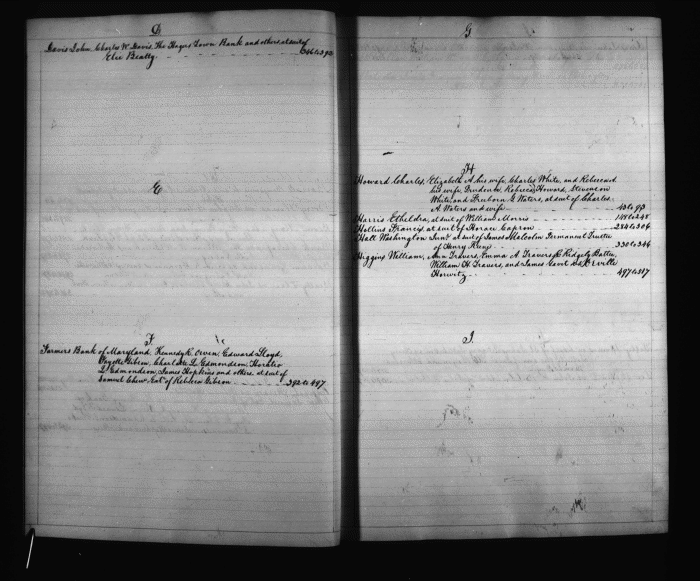 D
Davis John, Charles W. Davis, The Hagers Town Bank and others, at suit of
Elie Beatty
E
F
Farmers Bank of Maryland, Kennedy R. Owen, Edward Lloyd,
Fayette Gibson, Charlotte L. Edmondson, Horatio
L. Edmondson, James Hopkins and others, at suit of
Samuel Chew Ext. of Rebecca Gibson 392 to 497
G
H
Howard Charles, Elizabeth A. his wife, Charles White, and Rebecca
his wife, Prudence, Rebecca Howard, Stevenson
White and Freeborn G. Waters, at suit of Charles
A. Waters and wife 43 to 93
Harris Etheldra, at suit of William Morris
Hollins Francis, at suit of Horace Capron 284 to 306
Hall Washington Junr. at suit of James Malcolm Permanent Trustee
of Henry 330 to 346
Higgins William, Ann Travers, Emma A. Travers, Ridgely Battee,
William H. Travers, and James Govt
Horwitz 497 to 517
I.